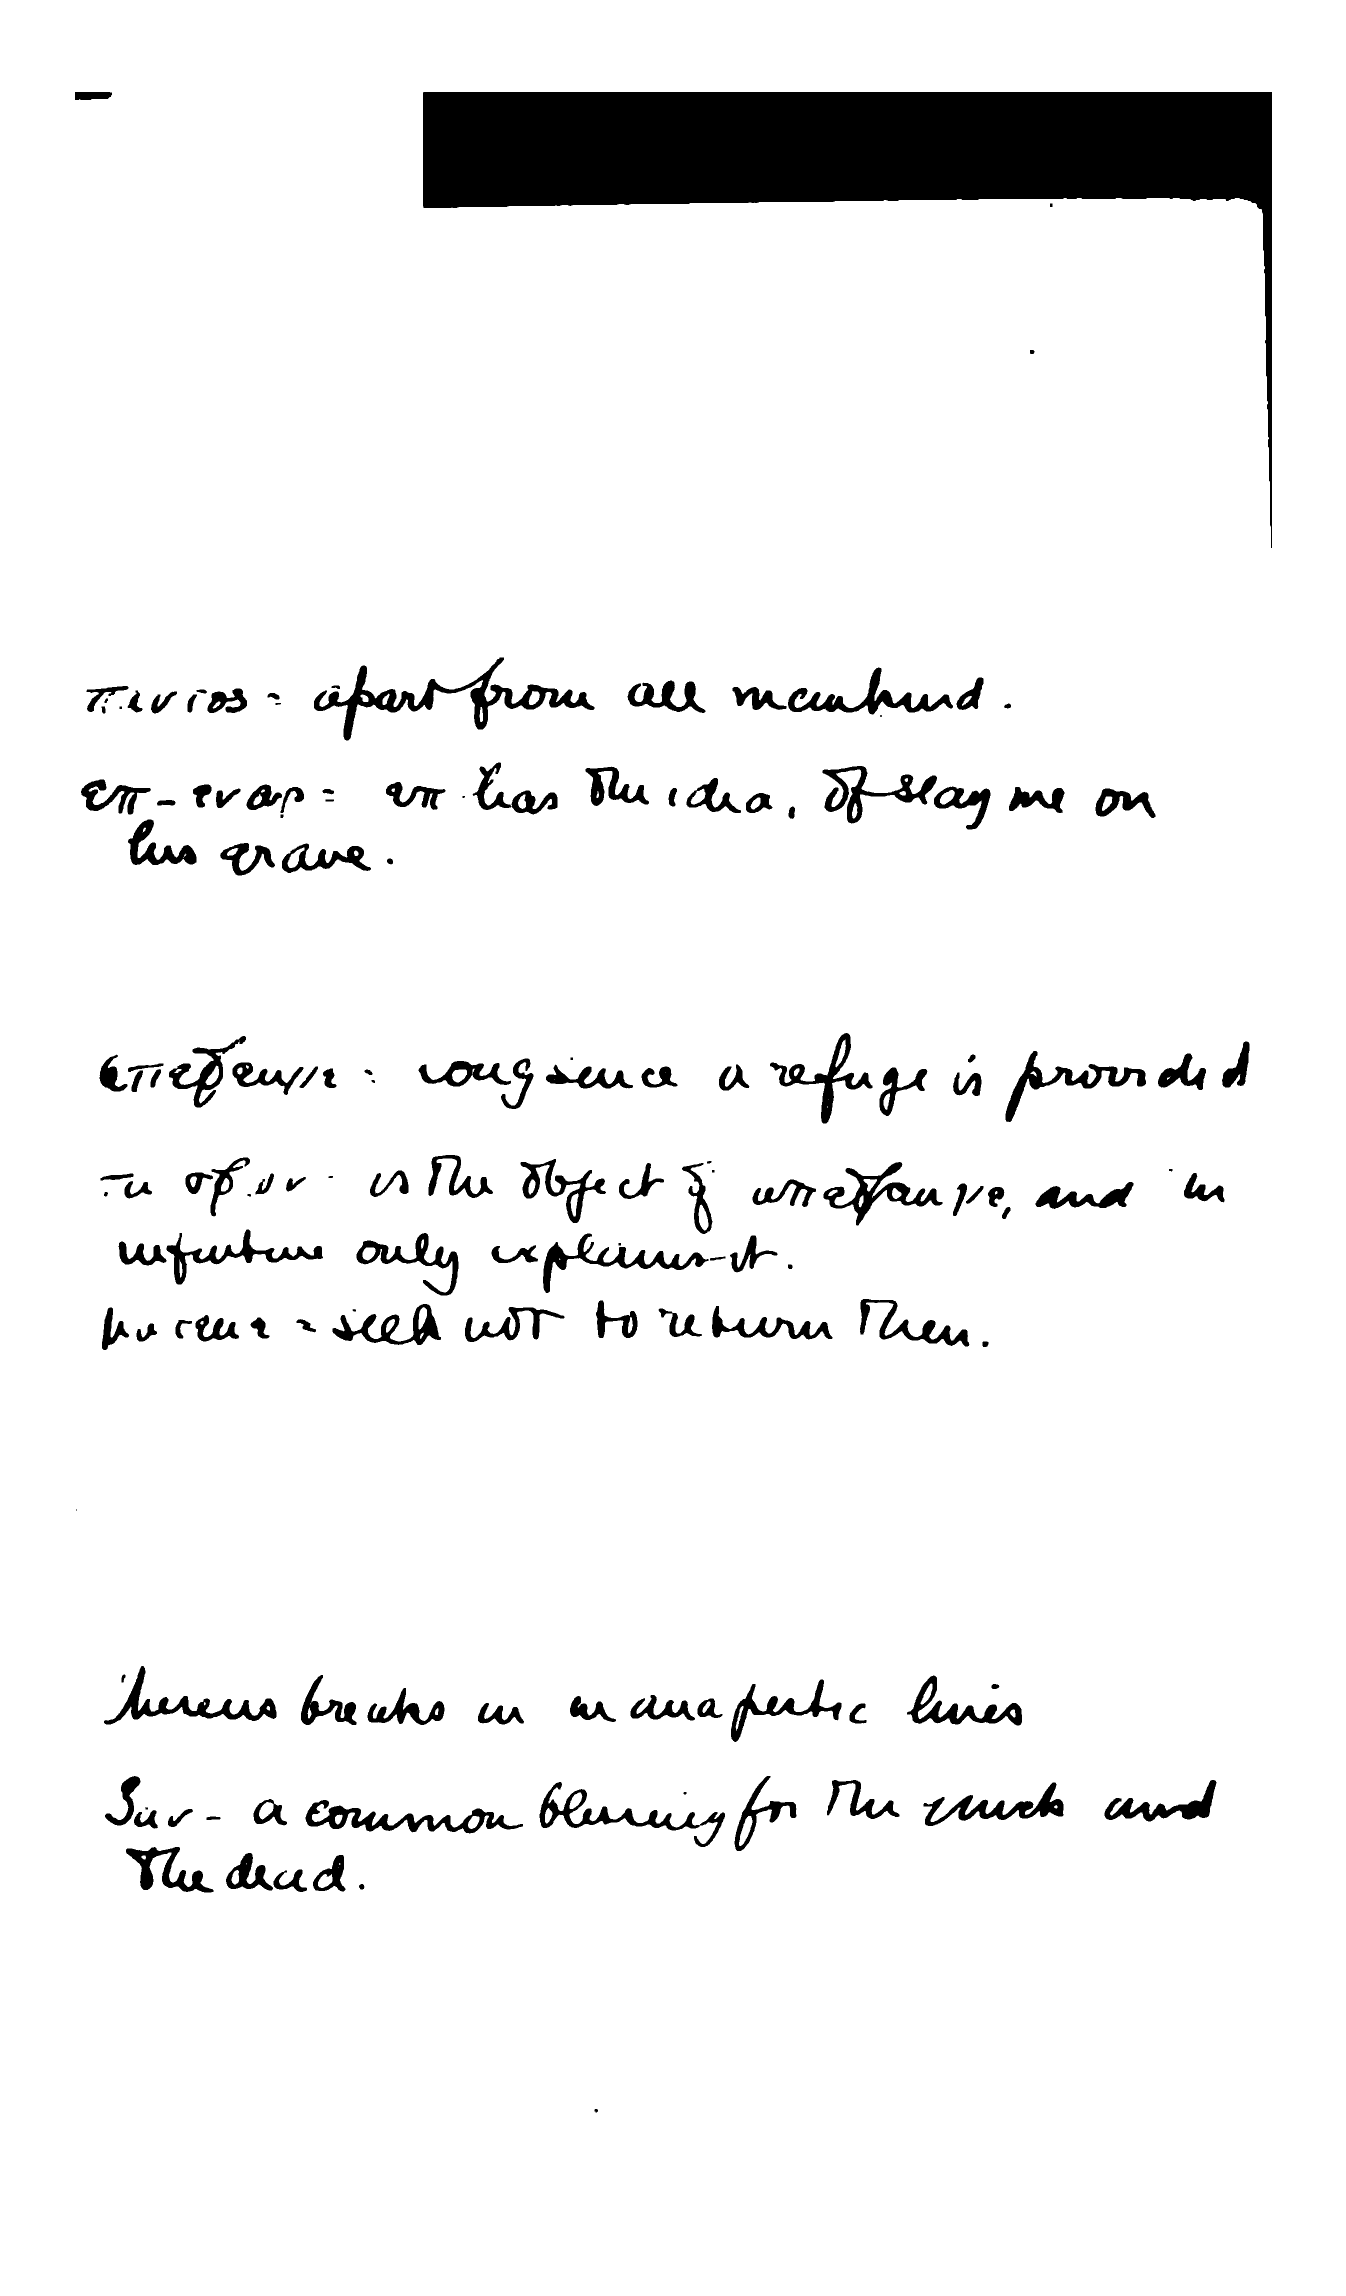 παντος = apart from all mankind.
επ-εναρ = επ has the idea, of slay me on
his grave.
long since a refuge is provided
is the object of and in
infinitive only explains it.
= seek not to return then.
breaks in in anapestic lines
a common blessing for the quick and
the dead.